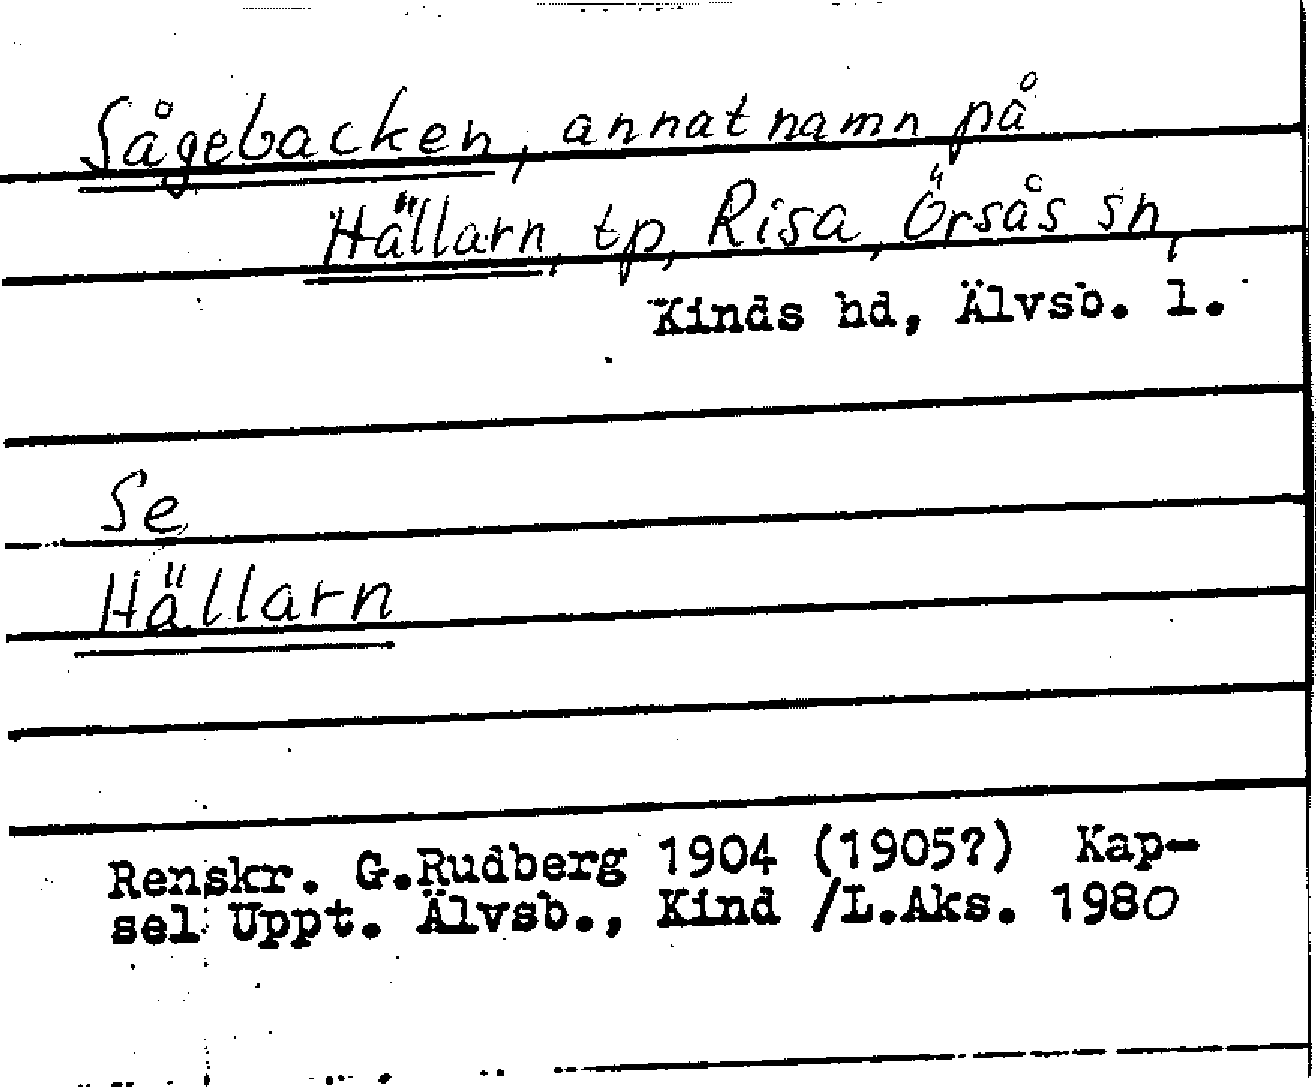 Sågebacken, annat namn på
Hällarn, tp, Risa, Örsås sn,
Kinds hd, Älvsb. l.
Se
Hällarn
Renskr. G.Rudberg 1904 (1905?) Kap-
sel Uppt. Älvsb., Kind /L.Aks. 1980